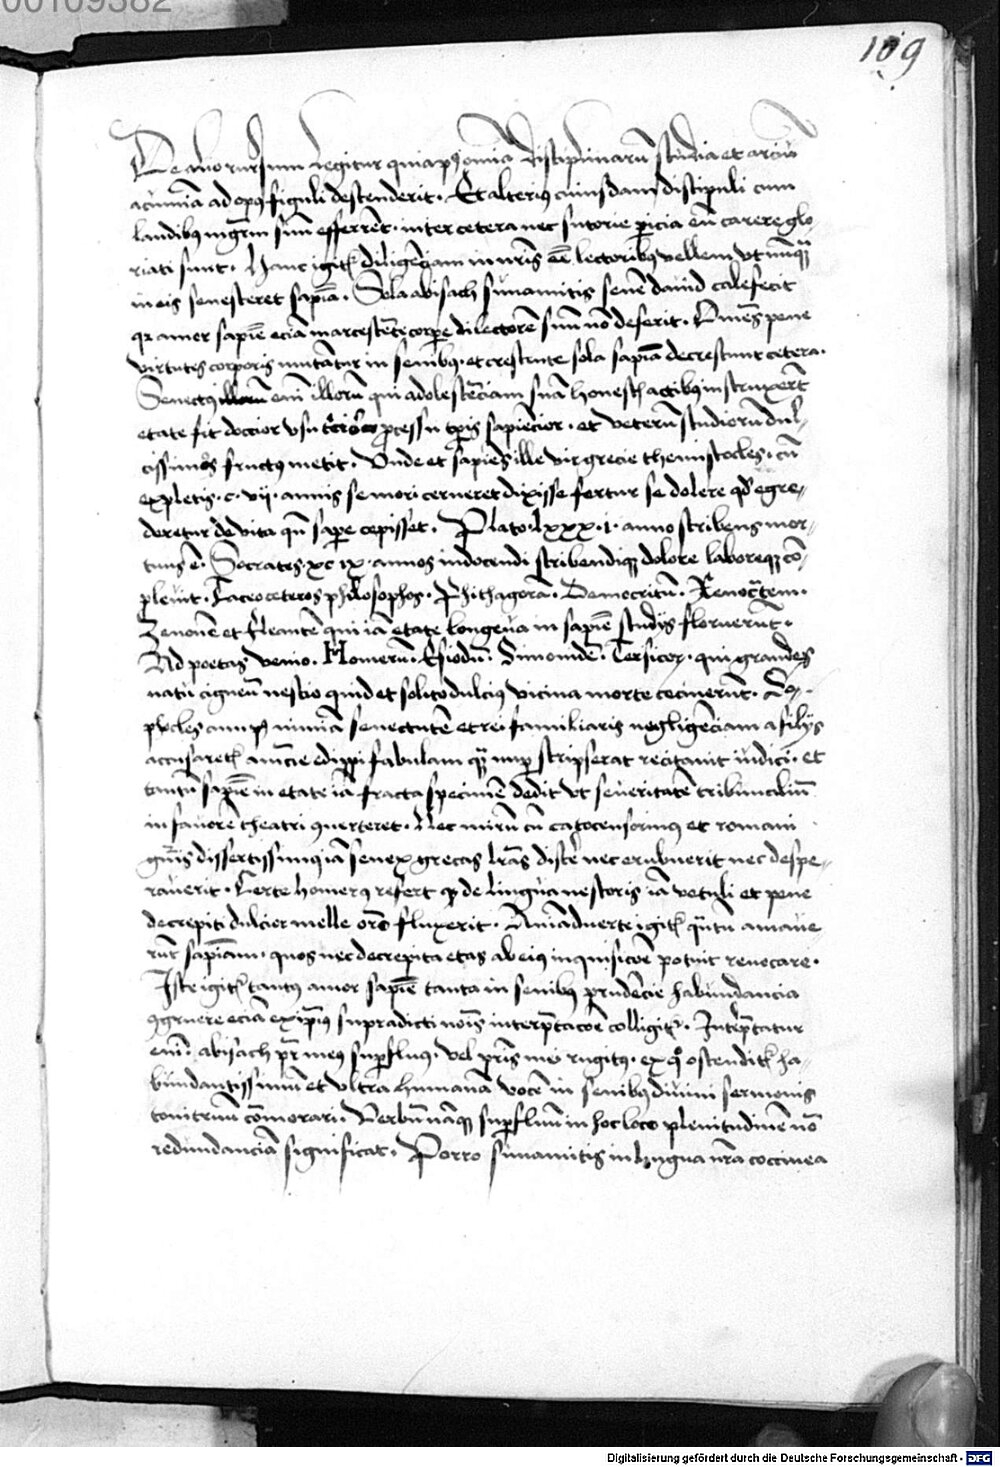 00109382
109
De alio rursum legitur quia pꝰ omniā disciplinarū studia et artiū
acumīa ad opꝰ figuli descenderit. Et alteriꝰ cuiusdam discipuli cum
laudibꝰ mgr̄m suū efferrēt. inter cetera nec sutorie pericia eū carere glo
riati sunt. Hanc igitr̄ diligēciam in nr̄is eē lectoribꝰ vellem vt nūqꝫ
in eis senesceret sapīa. Sola abisach sunamitis senē dauid calefecit
qꝛ amor sapiē eciā marcescēte corpe dilectorē suū nō deserit. Omēs pene
virtutes corporis mutātur in senibꝰ. et crescente sola sapīa decrescunt cetera.
Senectus eni illorū qui adolescēciam suā honestis actibꝰ instruxert̄
etate fit doccior vsu tricior processu tpis sapiēcior. et veterū studiorū dul
cissimos fructus metit. Vnde et sapiēs ille vir grecie themistocles. cū
expletis .c. vij. annis se mori cerneret dixisse fertur se dolere qd̓ egre
deretur de vita qn̄ sape cepisset. Plato .lxxx.i. anno scribens mor
tuus ē. Socrates xc ix annos in docendi scribendiqꝫ dolore laboreqꝫ cō
pleuit. Taceo ceteros philosophos. Phithagorā. Democritū. Xenocratem.
Zenonē et Cleantē qui iā etate longeua in sapiē studijs floruerūt.
Ad poetas venio. Homerū. Esiodū. Simonidē. Tersicor. qui grandes
natu cigneū nescio quid et solito dulciꝰ vicina morte cecinerūt. So
phocles cum pꝰ nimiā senectutē et rei familiaris negligēciam a filijs
accusaretr̄ amēcie edippi fabulam quā nup scripserat recitauit iudici. et
tantū sapiē in etate iā fracta specimē dedit vt seueritatē tribunaliū
in fauorē theatri ꝯuerteret. Nec mirū cū cato censorinꝰ et romani
gn̄is dissertissimꝰ iā senex grecas lr̄as discē nec erubuerit nec despe
rauerit. Certe homerꝰ refert qꝫ de lingua nestoris iā vetuli et pene
decrepiti dulcior melle orō fluxerit. Aniaduerte igitr̄ qūtū amaue
rūt sapīam. quos nec decrepita etas ab eiꝰ inquisicōe potuit reuocare.
Iste igitr̄ tantꝰ amor sapiē tanta in senibꝰ prudēcie habundancia
ꝯgruere eciā ex ipiꝰ supradicti nois interp̄tacōe colligitr̄. Interp̄tatur
eni. abisach pr̄ meꝰ supfluꝰ. vel pris mei rugitꝰ. ex qͦ ostenditr̄ ha
bundantissimū et vltra humanā vocē in senibꝰ diuini sermonis
tonitruū cōmorari. Verbū nāqꝫ supfluū in hoc loco plenitudinē nō
redundanciā significat. Porro sunamitis in lyngua nr̄a coccinea
Digitalisierung gefördert durch die Deutsche Forschungsgemeinschaft - DFG